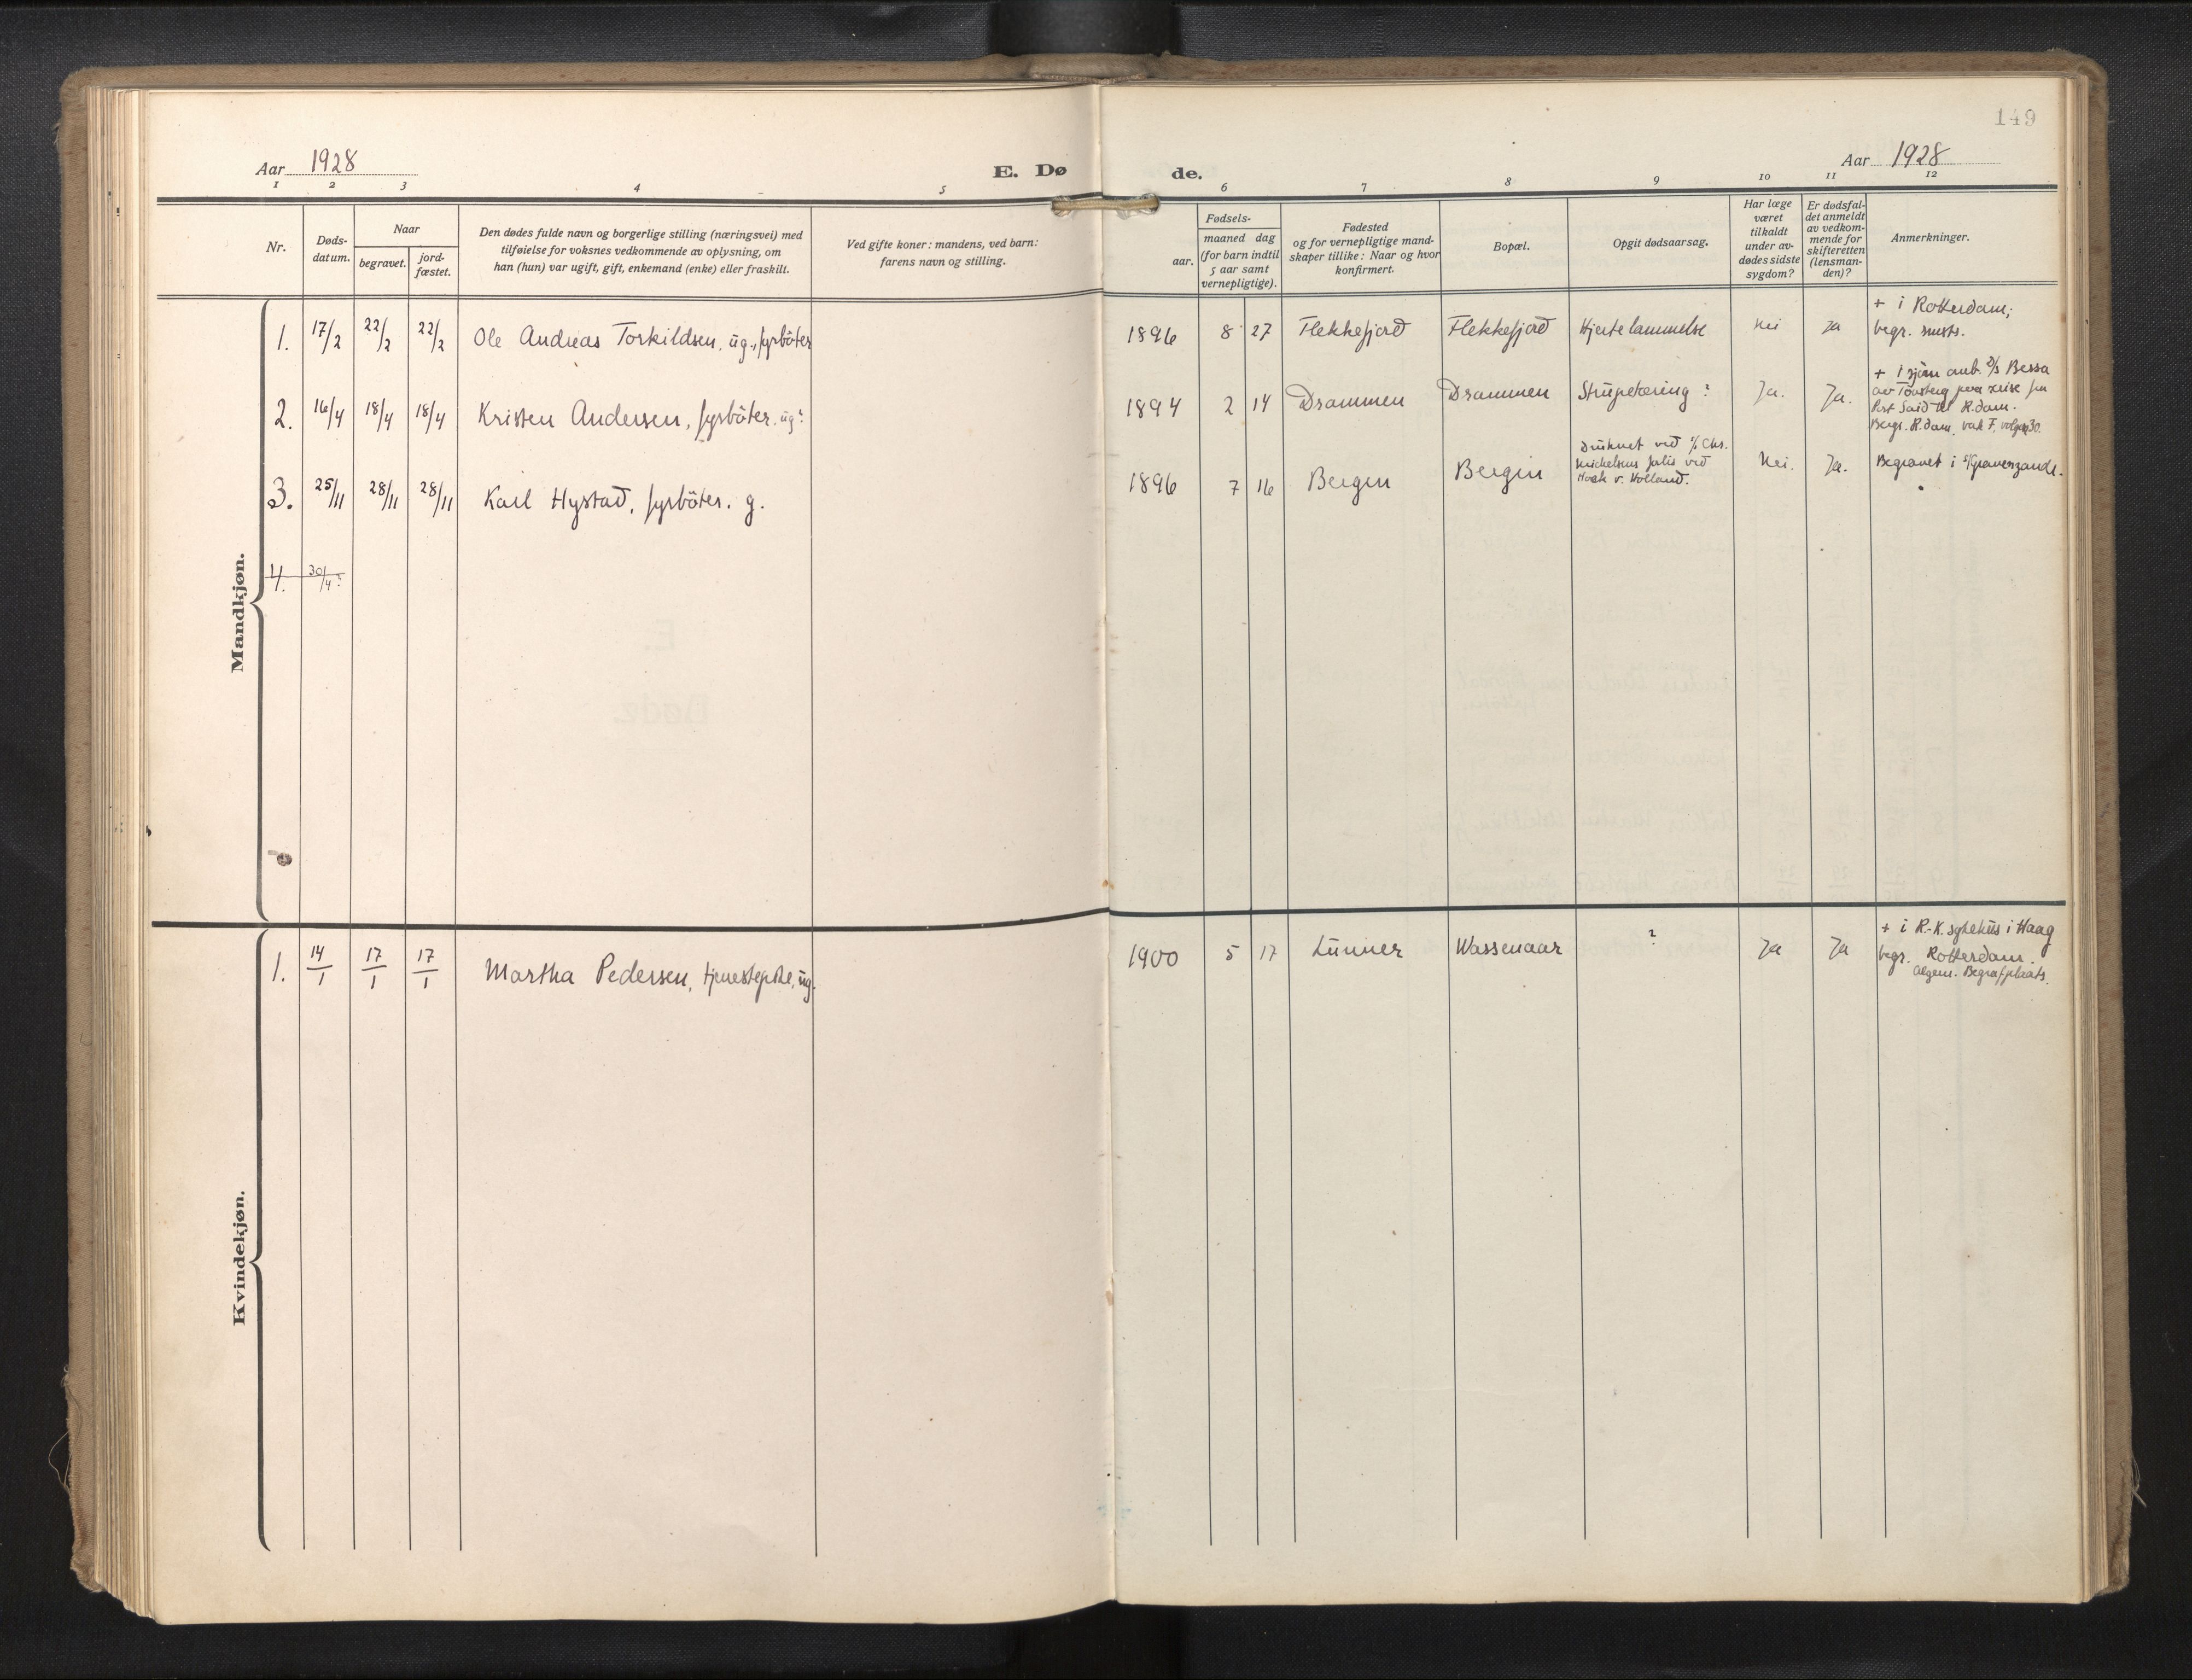 149
Aar 1928
E. Døde.
Aar 1928
1 2 3 4 5 6 7 8 9 10 11 12
Nr.
Døds-
datum.
Naar
begravet.
jord-
fæstet.
Den dødes fulde navn og borgerlige stilling (næringsvei) med
tilføielse for voksnes vedkommende av oplysning, om
han (hun) var ugift, gift, enkemand (enke) eller fraskilt.
Ved gifte koner: mandens, ved barn:
farens navn og stilling.
Fødsels-
aar.
maaned dag
(for barn indtil
5 aar samt
vernepligtige).
Fødested
og for vernepligtige mand-
skaper tillike: Naar og hvor
konfirmert.
Bopæl.
Opgit dødsaarsag.
Har læge
været
tilkaldt
under av-
dødes sidste
sygdom?
Er dødsfal-
det anmeldt
av vedkom-
mende for
skifteretten
(lensman-
den)?
Anmerkninger.
Mandkjøn.
1. 17/2 22/2 22/2 Ole Andreas Torkildsen, ug., fyrböter 1896 8 27 Flekkefjord Flekkefjord Hjertelammelse Nei Ja
+ i Rotterdam;
begr. smsts.
2. 16/4 18/4 18/4 Kristen Andersen, fyrböter. ug? 1894 2 14 Drammen Drammen Strupetæring? Ja. Ja.
+ i sjøen omb. D/S Bessa
av Tönsberg paa reise fra
Port Said til R.dam.
Begr. R.dam, vak F, volgn 30.
3. 25/11 28/11 28/11 Karl Hystad, fyrböter. g. 1896 7 16 Bergen Bergen
Druknet ved S/S Chr.
Michelsens forlis ved
Hoek v. Holland.
Nei. Ja. Begravet i s/Gravenzande.
4. 30/4?
Kvindekjøn.
1. 14/1 17/1 17/1 Martha Pedersen, tjenestepike, ug. 1900 5 17 Lunner Wassenaar ? Ja Ja
+ i R.-K. sykehus i Haag
begr. Rotterdam.
Algem. Begrafplaats.